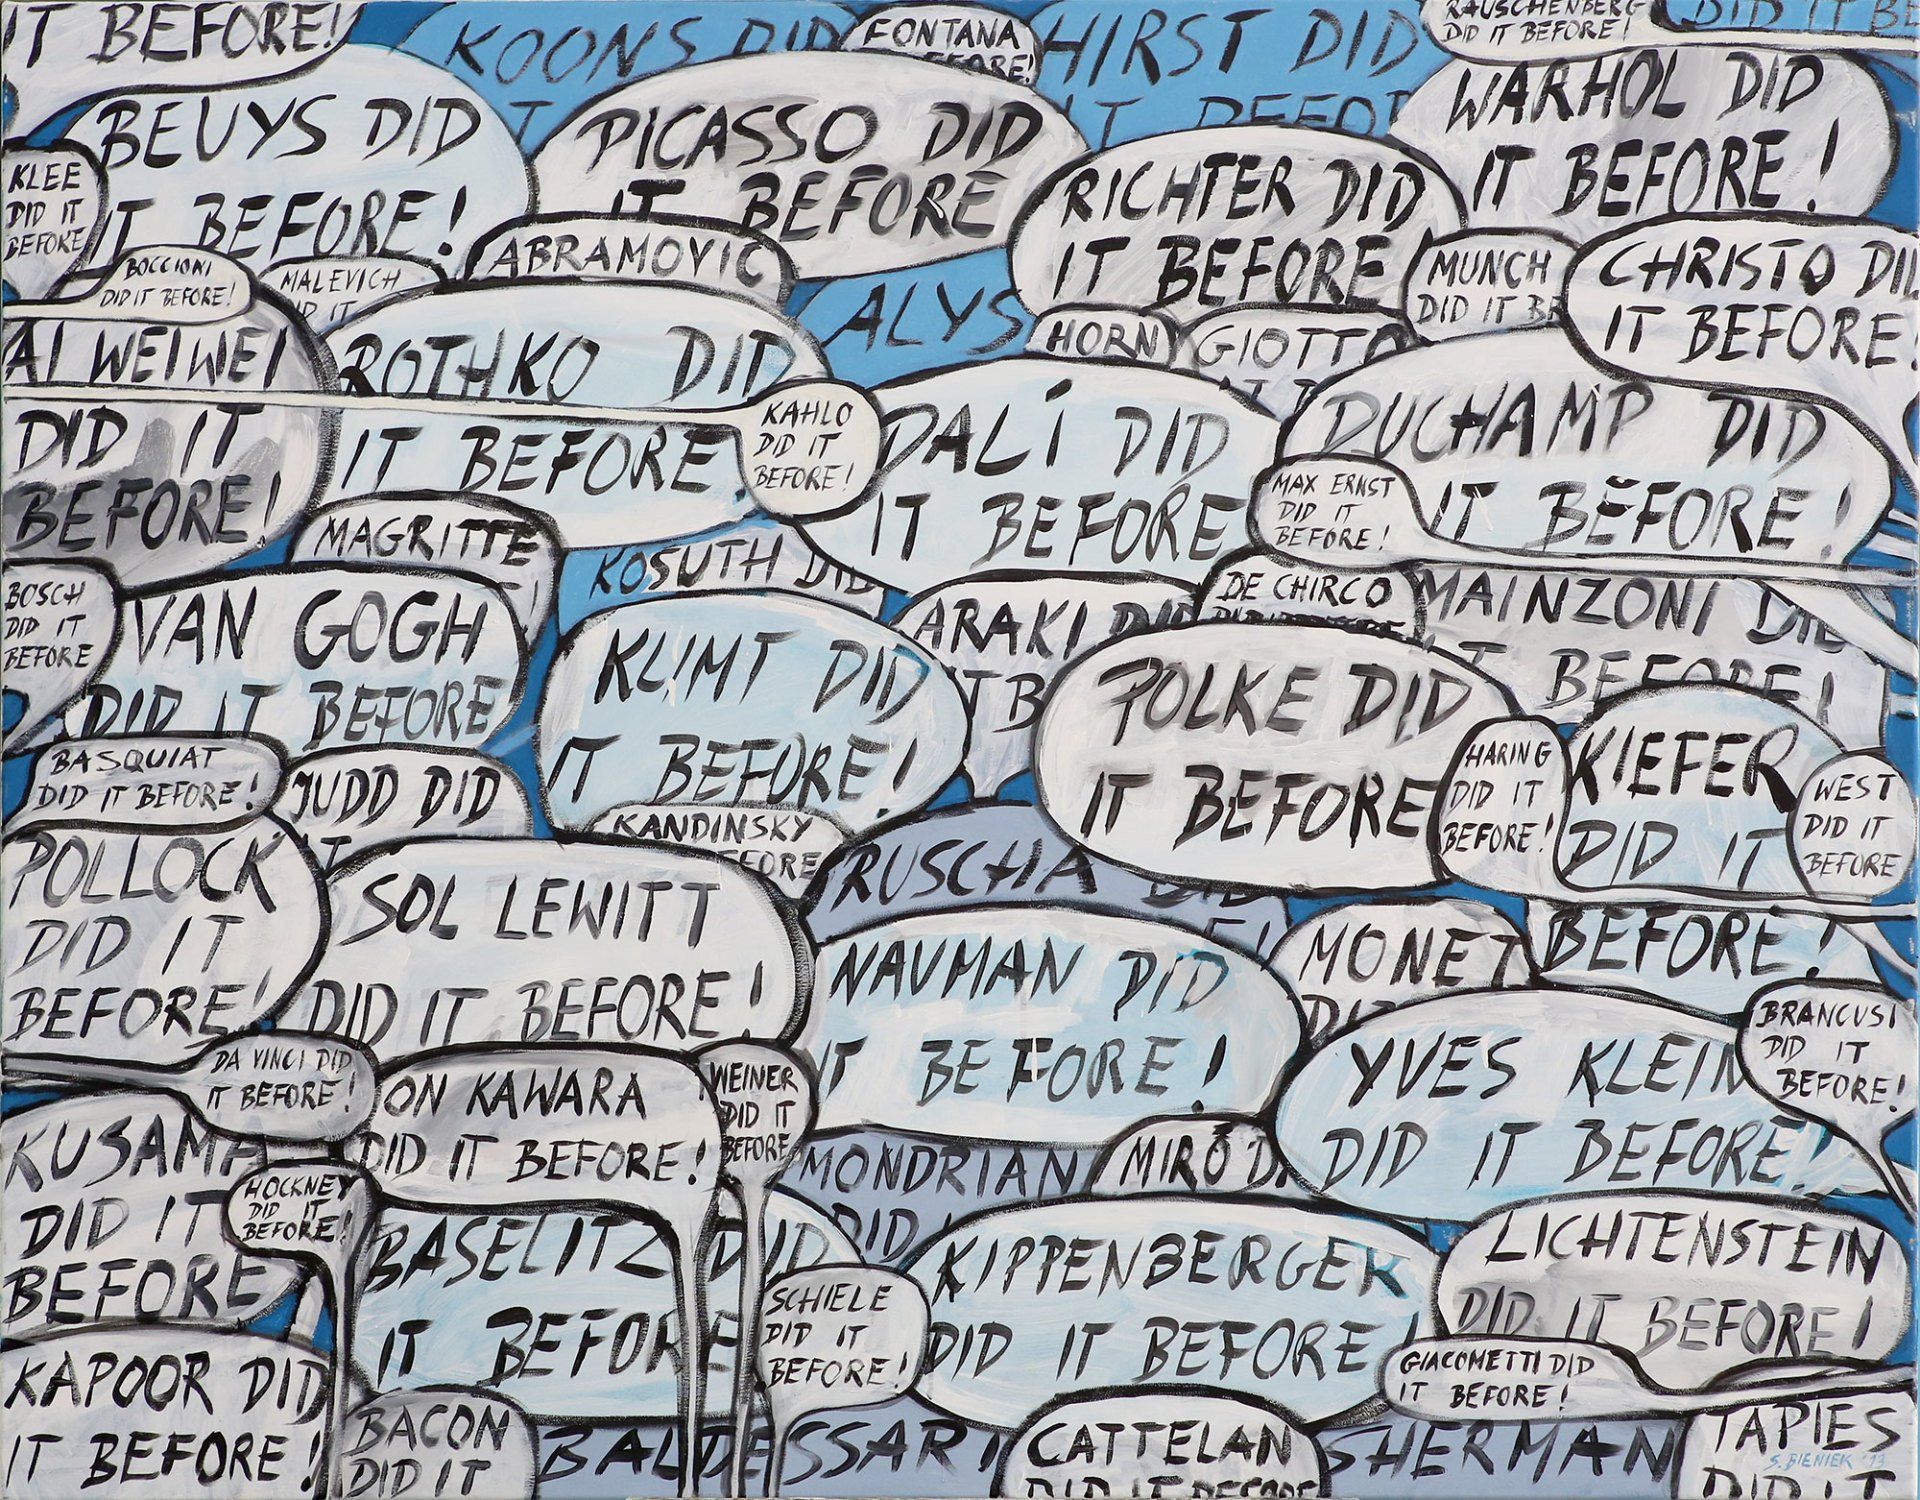 IT BEFORE!
KOONS DID
IT
FONTANA
BEFORE!
HIRST DID
IT BEFOR
RAUSCHENBERG
DID IT BEFORE!
DID IT BE
BEUYS DID
IT BEFORE!
PICASSO DID
IT BEFORE
WARHOL DID
IT BEFORE!
KLEE
DID IT
BEFORE
RICHTER DID
IT BEFORE!
BOCCIONI
DID IT BEFORE!
MALEVICH
DID IT
ABRAMOVIC
MUNCH
DID IT BE
CHRISTO DID
IT BEFORE!
ALYS
AI WEIWEI
DID IT
BEFORE!
ROTHKO DID
IT BEFORE
HORN
GIOTTO
KAHLO
DID IT
BEFORE!
DALÍ DID
IT BEFORE
DUCHAMP DID
IT BEFORE!
MAX ERNST
DID IT
BEFORE!
MAGRITTE
KOSUTH DID
BOSCH
DID IT
BEFORE
VAN GOGH
DID IT BEFORE
KLIMT DID
IT BEFORE!
ARAKI DID
IT B
DE CHIRCO
DID IT BEFORE
MAINZONI DID
IT BEFORE!
POLKE DID
IT BEFORE
HARING
DID IT
BEFORE!
KIEFER
DID IT
BEFORE!
WEST
DID IT
BEFORE
BASQUIAT
DID IT BEFORE!
JUDD DID
IT
KANDINSKY
BEFORE
RUSCHA DID
E!
POLLOCK
DID IT
BEFORE!
SOL LEWITT
DID IT BEFORE!
NAUMAN DID
IT BEFORE!
MONET
DID
BRANCUSI
DID IT
BEFORE!
YVES KLEIN
DID IT BEFORE!
DA VINCI DID
IT BEFORE!
ON KAWARA
DID IT BEFORE!
WEINER
DID IT
BEFORE
KUSAMA
DID IT
BEFORE
HOCKNEY
DID IT
BEFORE!
MONDRIAN
DID
MIRÓ D
BASELITZ DID
IT BEFORE
KIPPENBERGER
DID IT BEFORE!
LICHTENSTEIN
DID IT BEFORE!
SCHIELE
DID IT
BEFORE!
GIACOMETTI DID
IT BEFORE!
KAPOOR DID
IT BEFORE!
BACON
DID IT
BALDESSARI
CATTELAN
DID IT BEFORE
SHERMAN
TAPIES
DID IT
S. BIENIEK '13